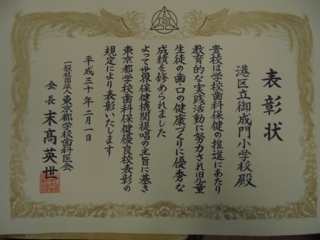 表彰状
港区立御成門小学校殿
貴校は学校歯科保健の推進にあたり
教育的な実践活動に努力され児童
生徒の歯・口の健康づくりに優秀な
成績を修められました
よって世界保健機関提唱の主旨に基き
東京都学校歯科保健優良校表彰の
規定により表彰いたします
平成三十年二月一日
一般社団法人東京都学校歯科医会
会長 末高英世